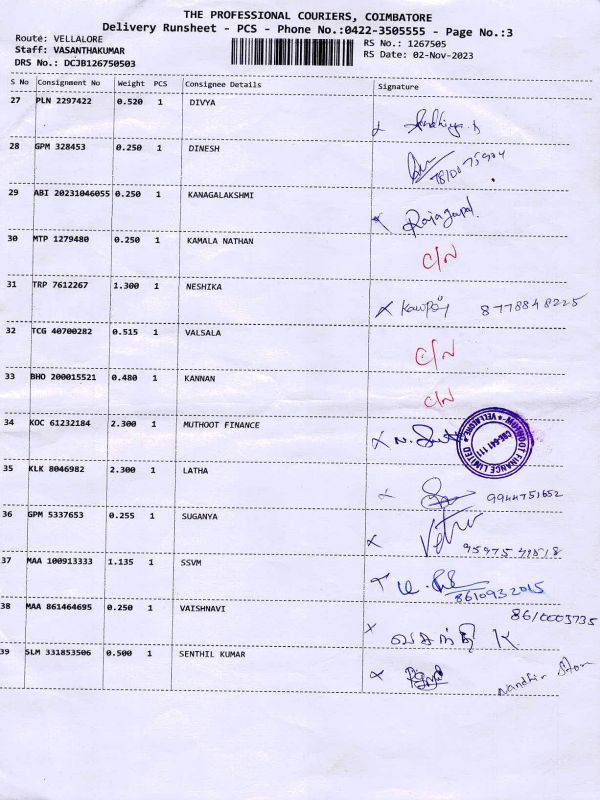 THE PROFESSIONAL COURIERS, COIMBATORE
Delivery Runsheet - PCS - Phone No.:0422-3505555 - Page No.:3
Route: VELLALORE
Staff: VASANTHAKUMAR
DRS No.: DCJB126750503
RS No.: 1267505
RS Date: 02-Nov-2023
S No Consignment No Weight PCS Consignee Details Signature
27 PLN 2297422 0.520 1 DIVYA
28 GPM 328453 0.250 1 DINESH
29 ABI 20231046055 0.250 1 KANAGALAKSHMI Rajagopal
30 MTP 1279480 0.250 1 KAMALA NATHAN C/N
31 TRP 7612267 1.300 1 NESHIKA 8778848225
32 TCG 40700282 0.515 1 VALSALA C/N
33 BHO 200015521 0.480 1 KANNAN C/N
34 KOC 61232184 2.300 1 MUTHOOT FINANCE MUTHOOT FINANCE LIMITED * VELLALORE * CBE-641 111
35 KLK 8046982 2.300 1 LATHA 9944751652
36 GPM 5337653 0.255 1 SUGANYA Vetri
37 MAA 100913333 1.135 1 SSVM 8610932015
38 MAA 861464695 0.250 1 VAISHNAVI 8610003735
வசந்தி K
39 SLM 331853506 0.500 1 SENTHIL KUMAR